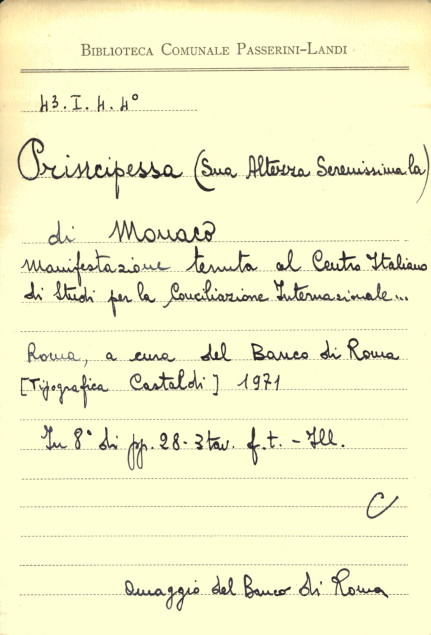 BIBLIOTECA COMUNALE PASSERINI-LANDI
43. I. 4. 4°
Principessa (Sua Altezza Serenissima la)
di Monaco
Manifestazione tenuta al Centro Italiano
di Studi per la Conciliazione Internazionale...
Roma, a cura del Banco di Roma
[Tipografica Castaldi] 1971
In 8° di pp. 28 - 3 tav. f. t. - Ill.
C
Omaggio del Banco di Roma